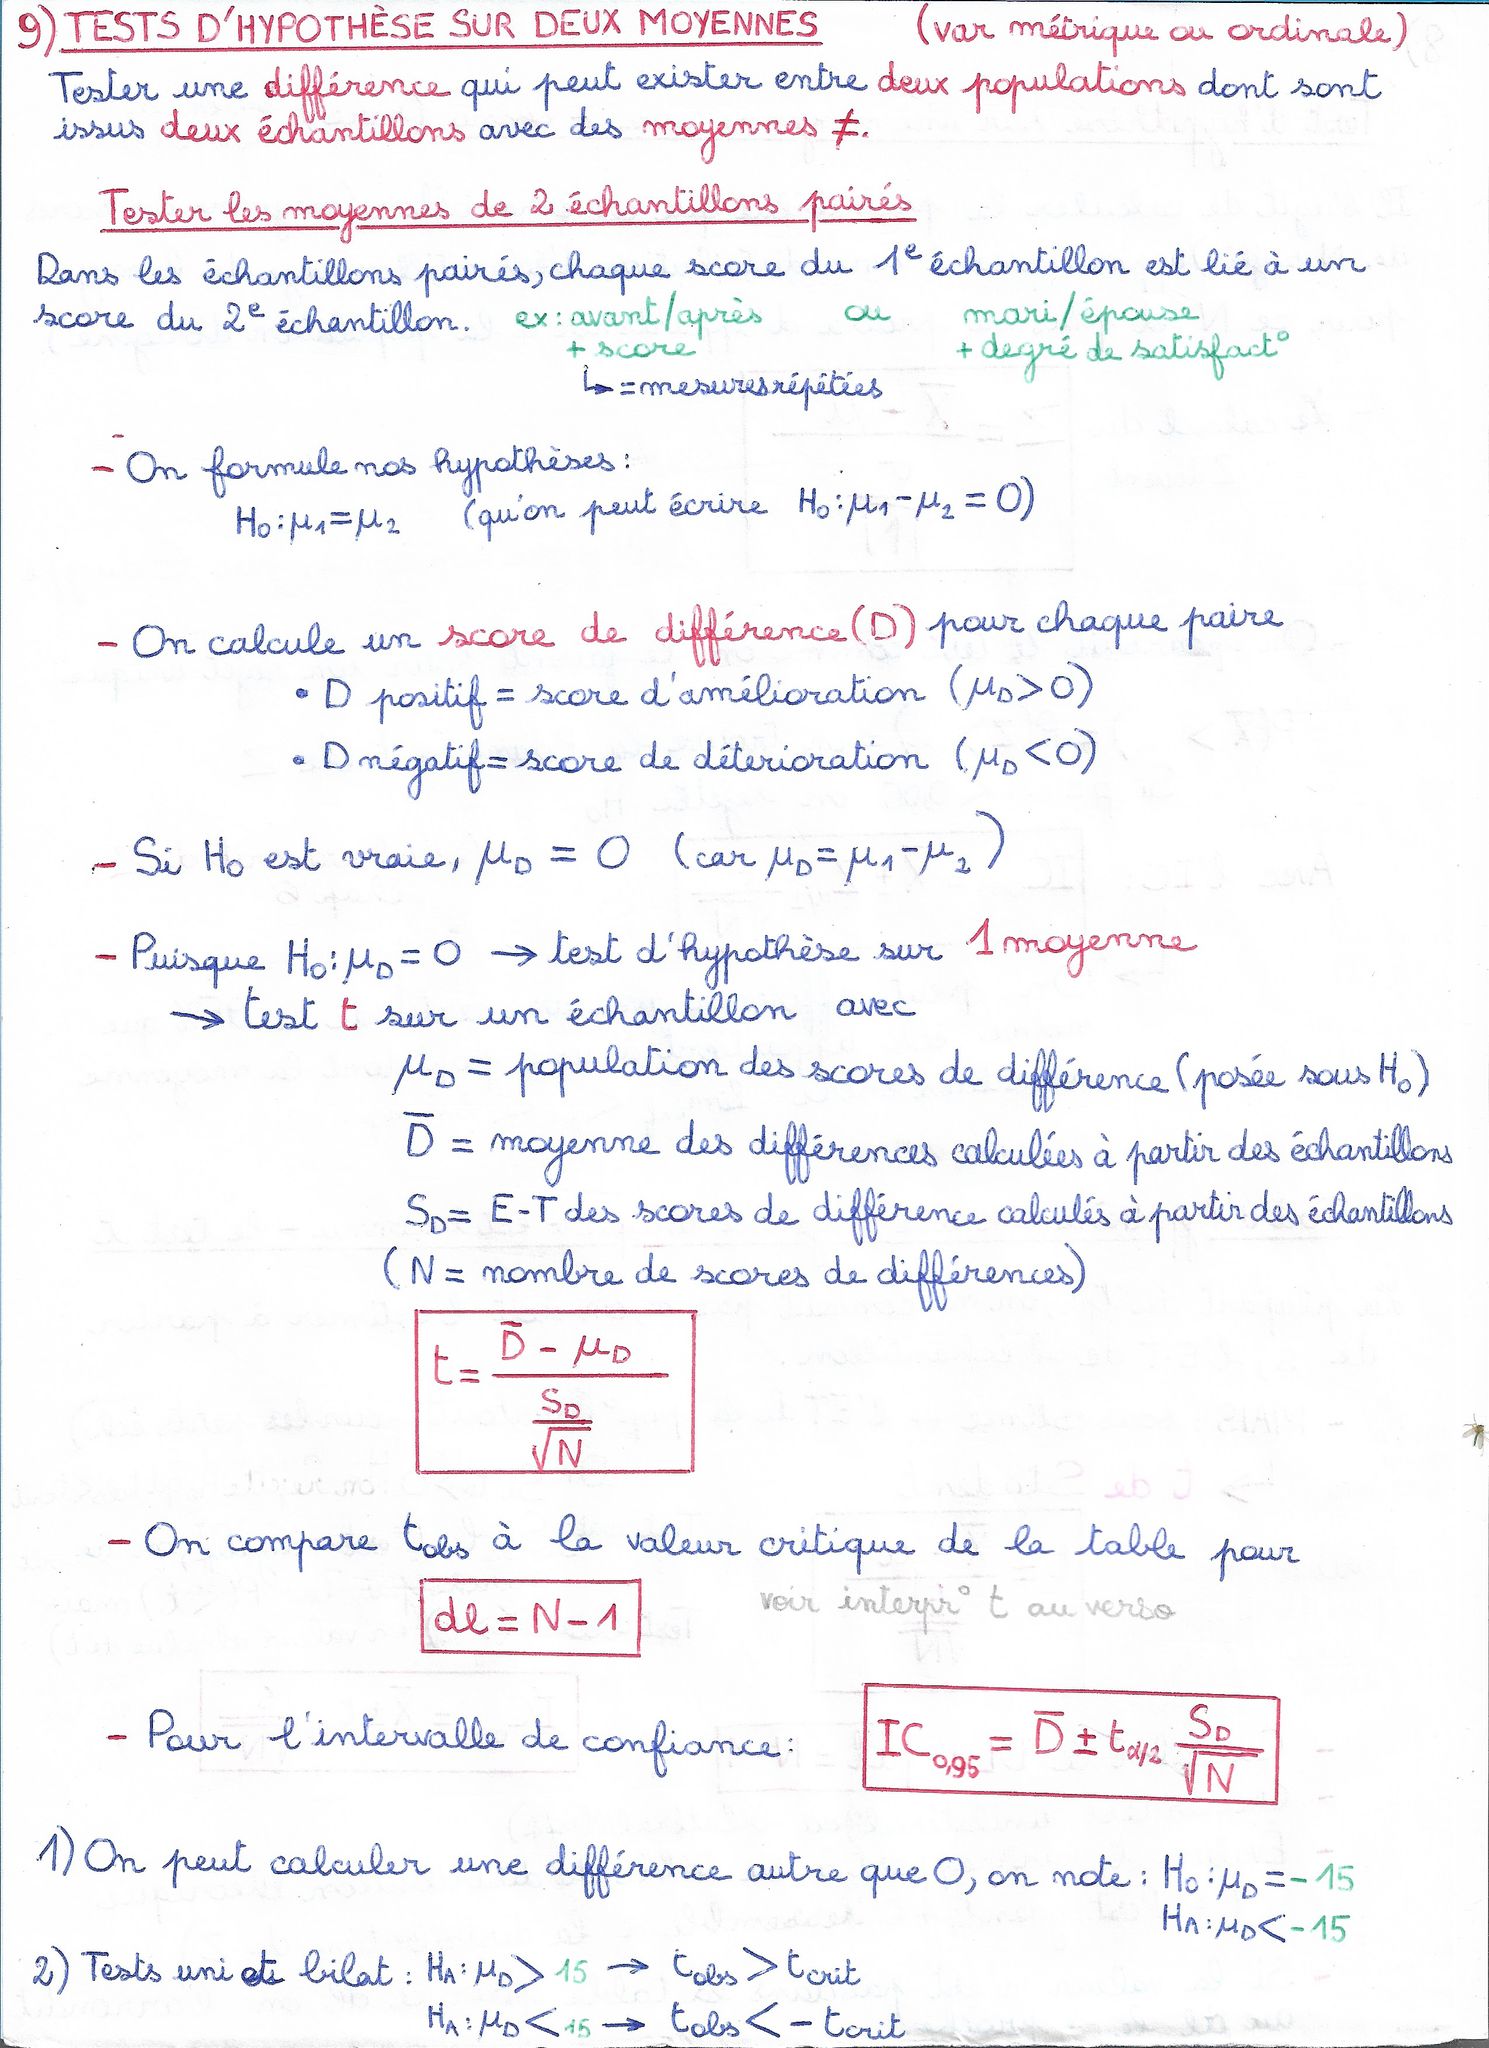 9) TESTS D'HYPOTHÈSE SUR DEUX MOYENNES (var métrique ou ordinale)
Tester une différence qui peut exister entre deux populations dont sont
issus deux échantillons avec des moyennes ≠.
Tester les moyennes de 2 échantillons pairés
Dans les échantillons pairés, chaque score du 1e échantillon est lié à un
score du 2e échantillon. ex: avant/après ou mari/épouse
+ score + degré de satisfact°
↳ = mesures répétées
- On formule nos hypothèses:
H0: μ1 = μ2 (qu'on peut écrire H0: μ1 - μ2 = 0)
- On calcule un score de différence (D) pour chaque paire
• D positif = score d'amélioration (μD > 0)
• D négatif = score de déterioration (μD < 0)
- Si H0 est vraie, μD = 0 (car μD = μ1 - μ2)
- Puisque H0: μD = 0 → test d'hypothèse sur 1 moyenne
→ test t sur un échantillon avec
μD = population des scores de différence (posée sous H0)
D̅ = moyenne des différences calculées à partir des échantillons
SD = E-T des scores de différence calculés à partir des échantillons
(N = nombre de scores de différences)
t = (D̅ - μD) / (SD / √N)
- On compare tobs à la valeur critique de la table pour
dl = N - 1 voir interpr° t au verso
- Pour l'intervalle de confiance: IC0,95 = D̅ ± tα/2 SD/√N
1) On peut calculer une différence autre que 0, on note: H0: μD = -15
HA: μD < -15
2) Tests uni et bilat: HA: μD > 15 → tobs > tcrit
HA: μD < 15 → tobs < - tcrit